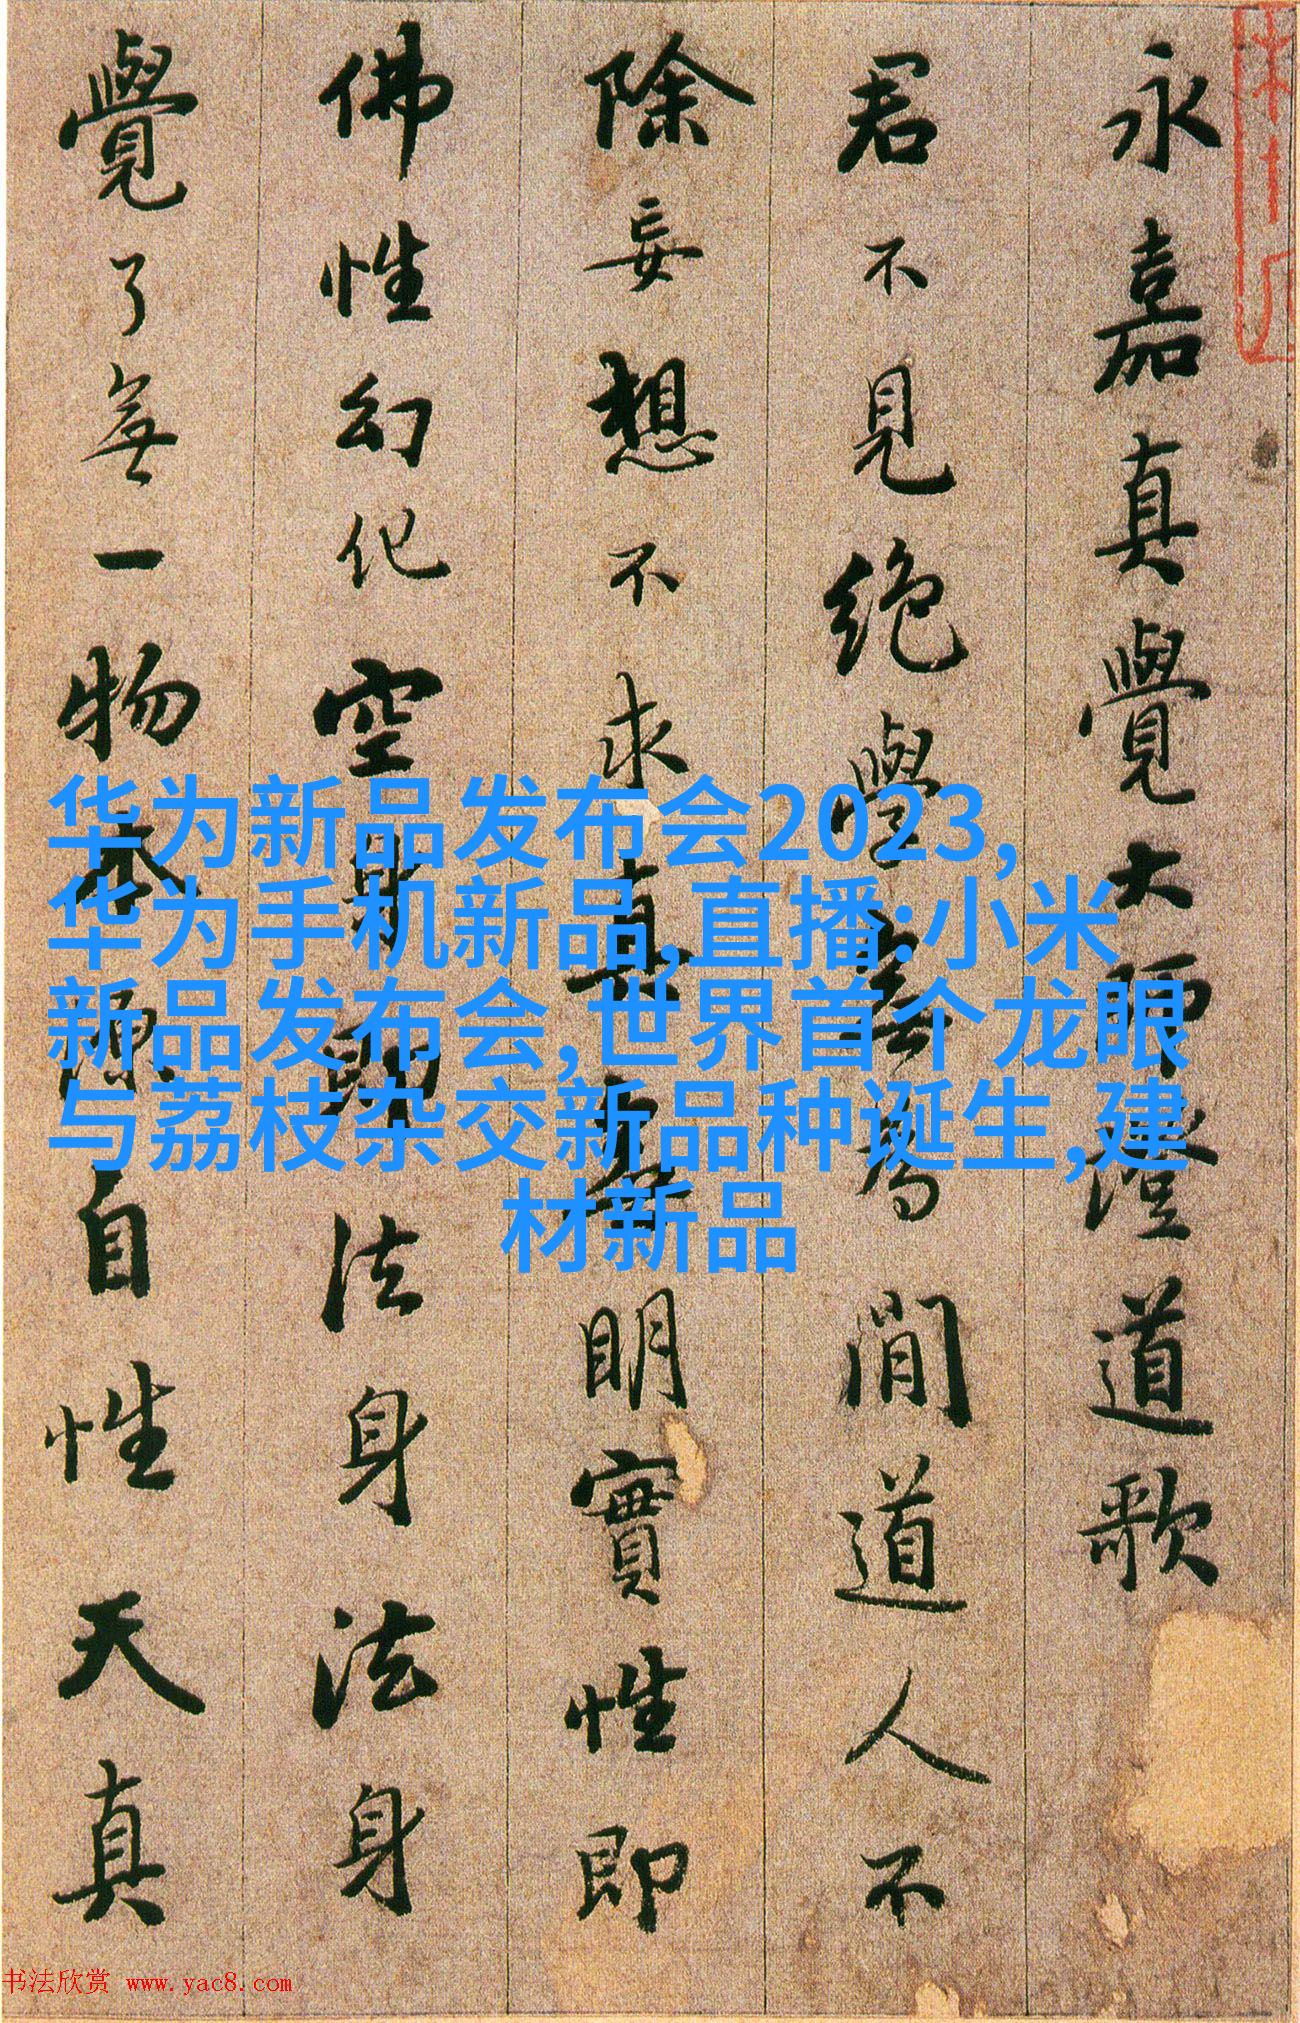 永嘉真覺大師證道歌
君不見絕學無為閒道人不
除妄想不求真無明實性即
佛性幻化空身即法身法身
覺了無一物本源自性天真
华为新品发布会2023,
华为手机新品,直播:小米
新品发布会,世界首个龙眼
与荔枝杂交新品种诞生,建
材新品
书法欣赏 www.yac8.com